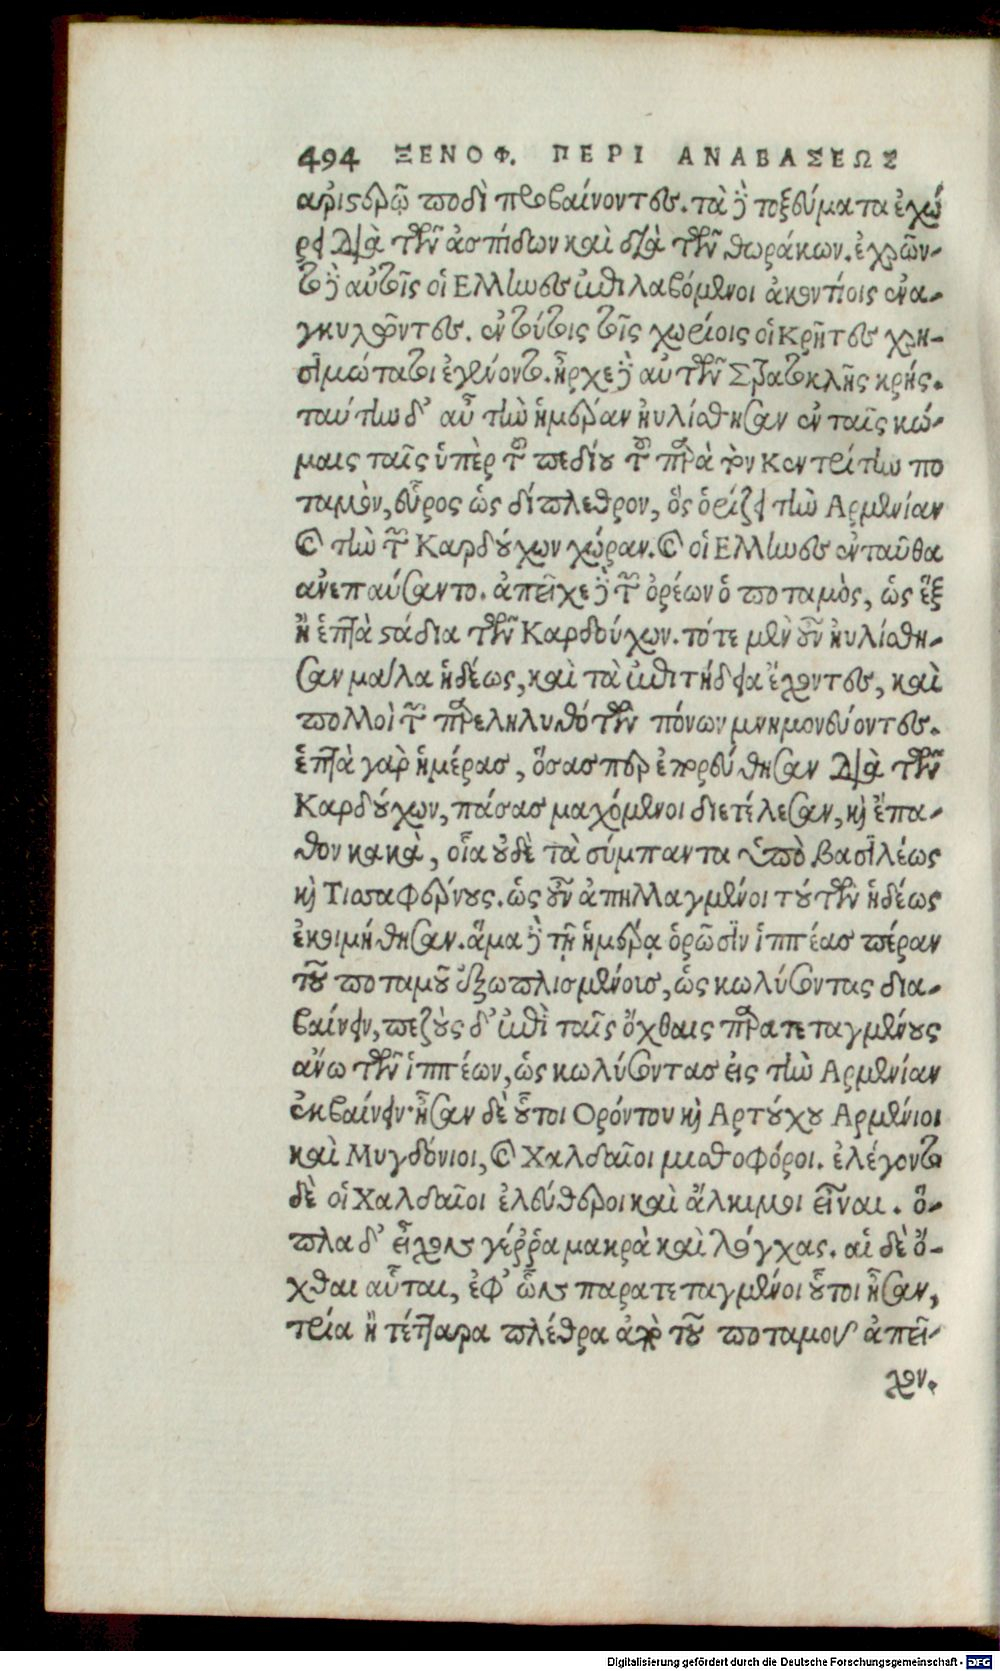 494 ΞΕΝΟΦ. ΠΕΡΙ ΑΝΑΒΑΣΕΩΣ
αριστερῷ ποδὶ προβαίνοντες. τὰ δὲ τοξεύματα ἐχώ
ρει διὰ τῶν ἀσπίδων καὶ διὰ τῶν θωράκων. ἐχρῶν-
το δὲ αὐτοῖς οἱ Ελληνες ἐπιλαβόμενοι ἀκοντίοις ἐνα-
γκυλοῦντες. ἐν τούτοις τοῖς χωρίοις οἱ Κρῆτες χρη-
σιμώτατοι ἐγένοντο. ἦρχε δὲ αὐτῶν Στρατοκλῆς κρής.
ταύτην δ' αὖ τὴν ἡμέραν ηὐλίσθησαν ἐν ταῖς κώ-
μαις ταῖς ὑπὲρ τοῦ πεδίου τοῦ παρὰ τὸν Κεντρίτην πο
ταμὸν, εὖρος ὡς δίπλεθρον, ὃς ὁρίζει τὴν Αρμενίαν
καὶ τὴν τῶν Καρδούχων χώραν. καὶ οἱ Ελληνες ἐνταῦθα
ανεπαύσαντο. ἀπεῖχε δὲ τῶν ὀρέων ὁ ποταμὸς, ὡς ἓξ
ἢ ἑπτὰ στάδια τῶν Καρδούχων. τότε μὲν οὖν ηὐλίσθη-
σαν μάλα ἡδέως, καὶ τὰ ἐπιτήδεια ἔχοντες, καὶ
πολλοὶ τῶν παρεληλυθότων πόνων μνημονεύοντες.
ἑπτὰ γαρ ἡμέρας, ὅσας περ ἐπορεύθησαν διὰ τῶν
Καρδούχων, πάσας μαχόμενοι διετέλεσαν, καὶ ἔπα-
θον κακὰ, οἷα οὐδὲ τὰ σύμπαντα ὑπὸ βασιλέως
καὶ Τισσαφέρνους. ὡς οὖν ἀπηλλαγμένοι τούτων ἡδέως
ἐκοιμήθησαν. ἅμα δὲ τῇ ἡμέρᾳ ὁρῶσιν ἱππέας πέραν
τοῦ ποταμοῦ ἐξωπλισμένοις, ὡς κωλύσοντας δια-
βαίνειν, πεζοὺς δ' ἐπὶ ταῖς ὄχθαις παρατεταγμένους
ἀνω τῶν ἱππέων, ὡς κωλύσοντας εἰς τὴν Αρμενίαν
ἐκβαίνειν· ἦσαν δὲ οὗτοι Ορόντου καὶ Αρτούχου Αρμένιοι
καὶ Μυγδόνιοι, καὶ Χαλδαῖοι μισθοφόροι. ἐλέγοντο
δὲ οἱ Χαλδαῖοι ἐλεύθεροι καὶ ἄλκιμοι εἶναι. ὅ-
πλα δ' εἶχον γέῤῥα μακρὰ καὶ λόγχας. αἱ δὲ ὄ-
χθαι αὗται, ἐφ' ὧν παρατεταγμένοι οὗτοι ἦσαν,
τρία ἢ τέτταρα πλέθρα ἀπὸ τοῦ ποταμοῦ ἀπεῖ-
χον.
Digitalisierung gefördert durch die Deutsche Forschungsgemeinschaft - DFG